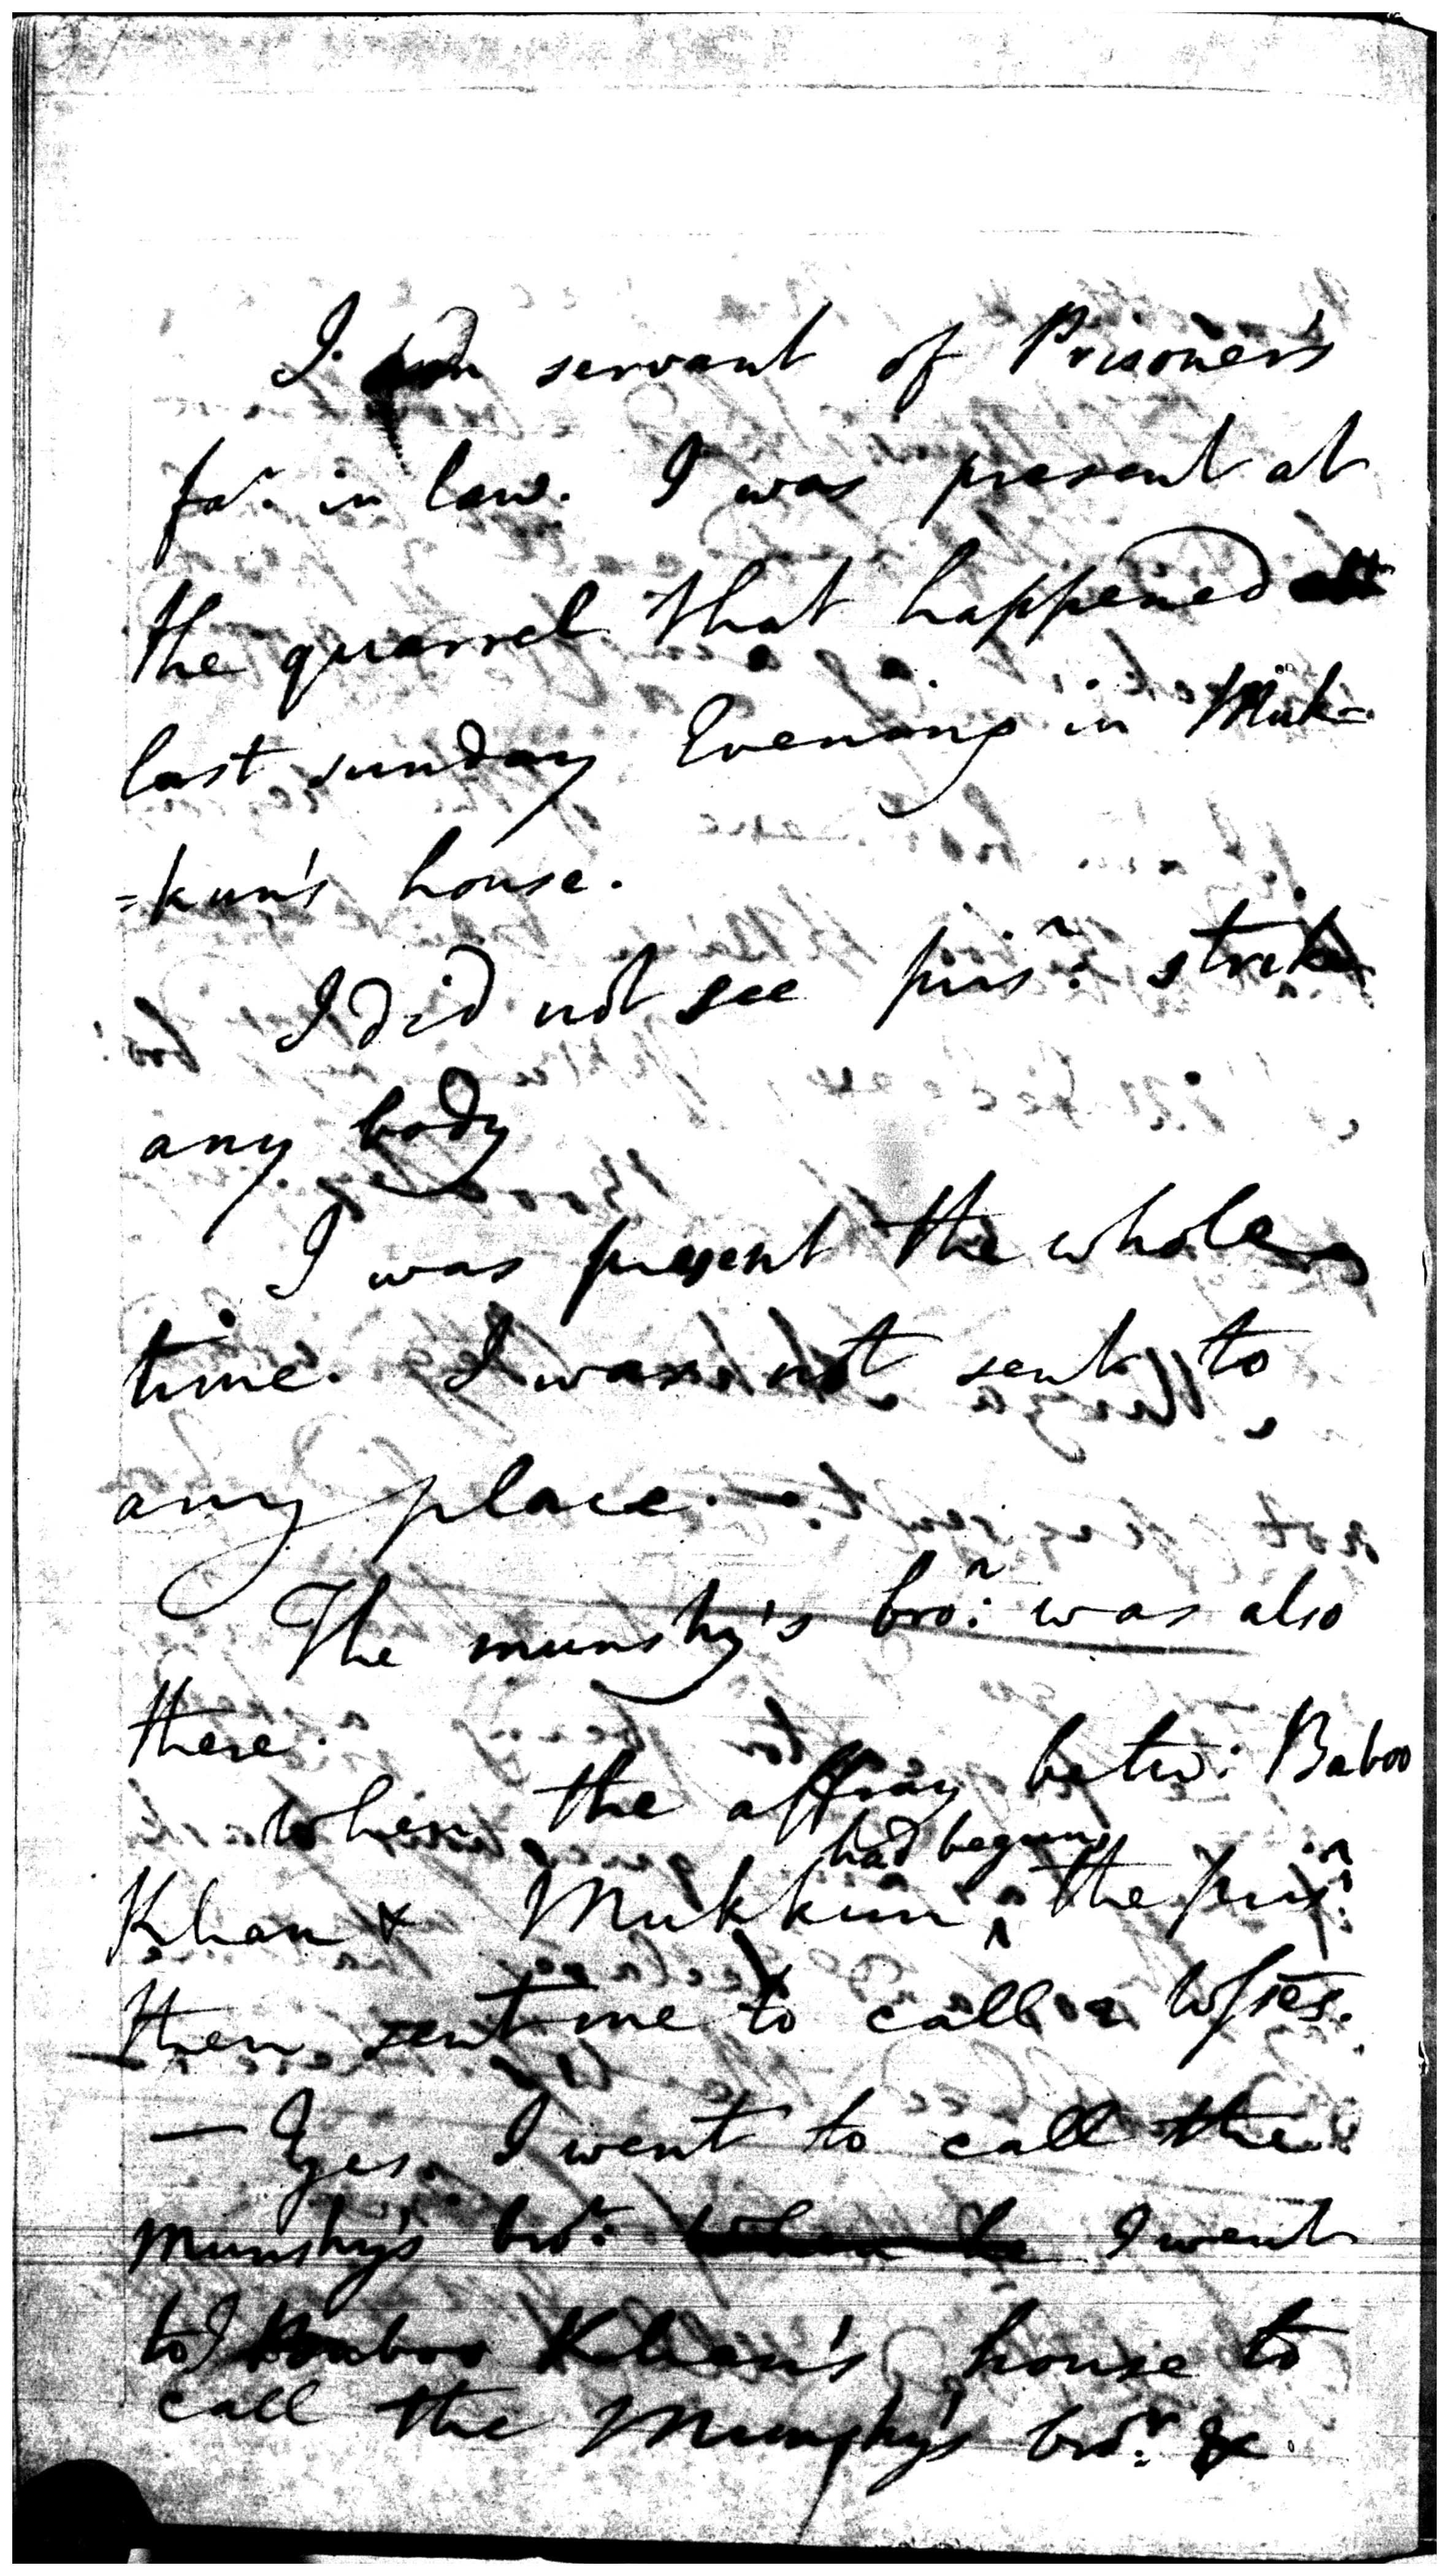 I am servant of Prisoner's
far. in law. I was present at
the quarrel that happened
last sunday Evening in Muk=
=kun's house.
I did not see prisr. strike
any body
I was present the whole
time. I was not sent to
any place.
The munshy's bror. was also
there.
When the affray betw: Baboo
had begun
Khan & Mukkun ^ the prisr.
then sent me to call
— Yes, I went to call the
Munshy's bror. when he I went
to Baboo Khan's house to
call the Munshy's bror. &c.